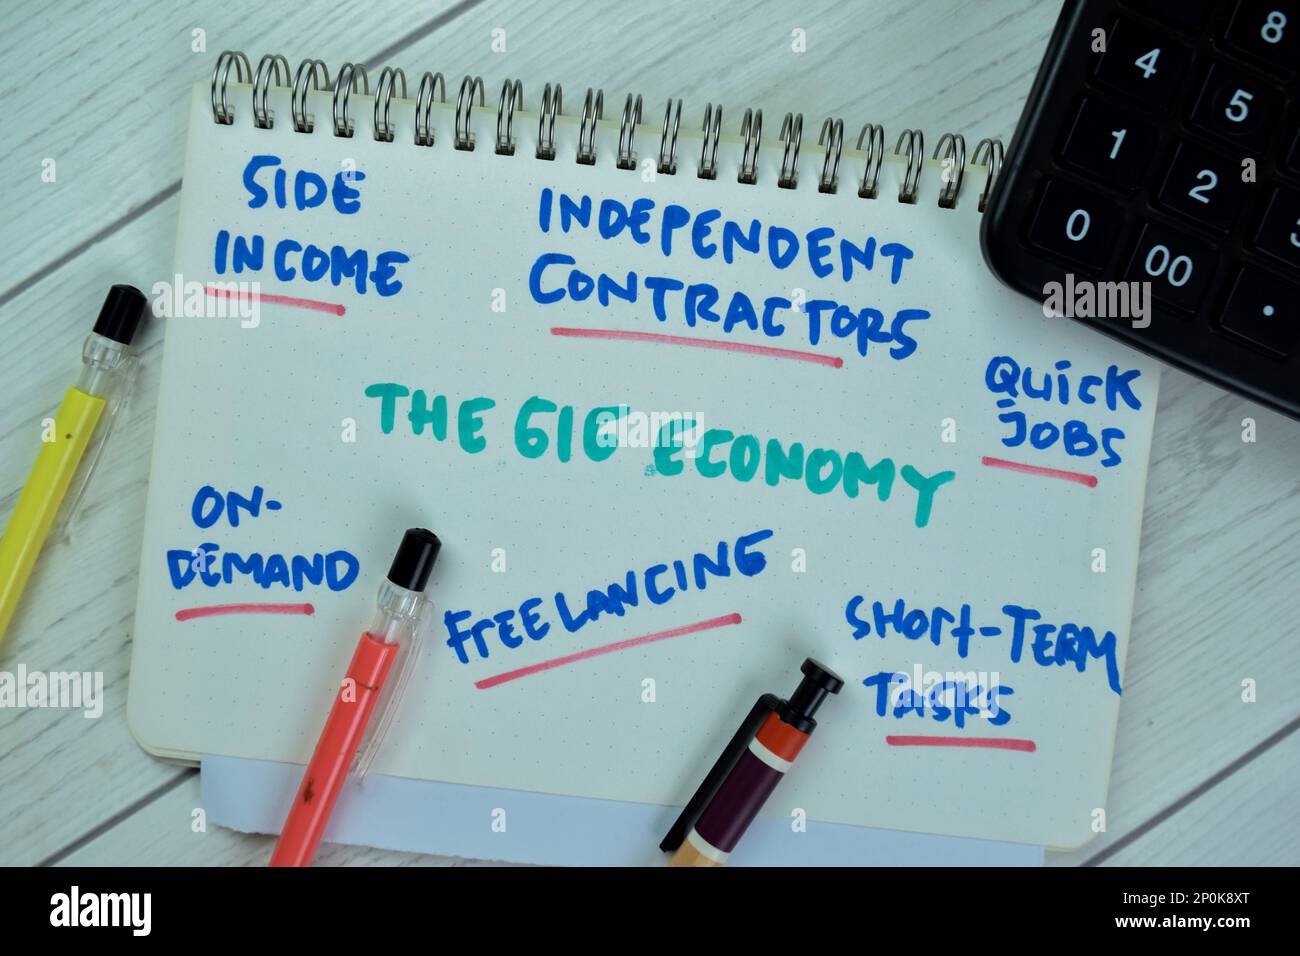 SIDE
INCOME
INDEPENDENT
CONTRACTORS
QUICK
JOBS
THE GIG ECONOMY
ON-
DEMAND
FREELANCING
SHORT-TERM
TASKS
8
4
5
1
2
0
00
.
a
alamy
Image ID: 2P0K8XT
www.alamy.com